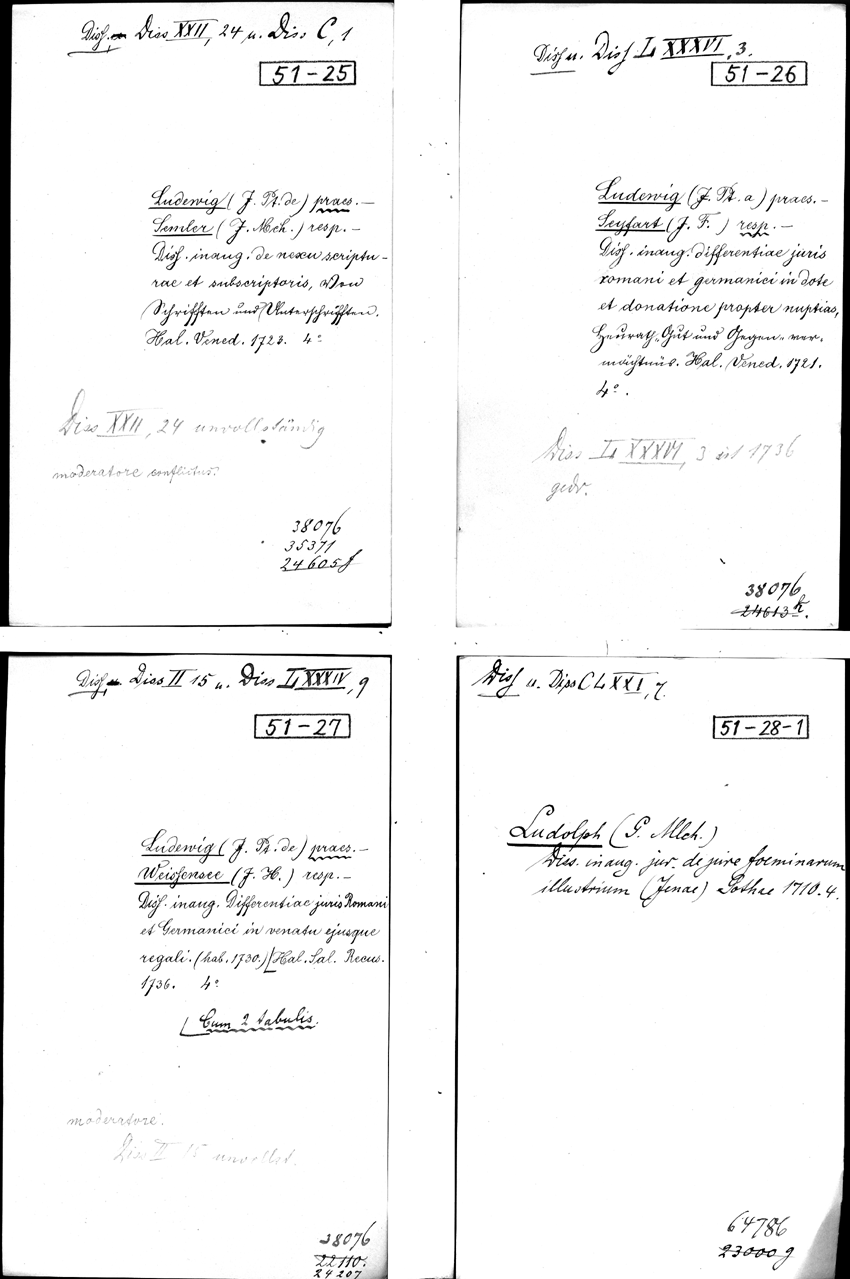 Diss. u. Diss XXII, 24 u. Diss C, 1
51-25
Ludewig (J. Pt. de) praes. —
Semler (J. Mch.) resp. —
Diss. inaug. de nexu scriptu-
rae et subscriptoris, Von
Schrifften und Unterschrifften.
Hal. Vened. 1723. 4°
Diss XXII, 24 unvollständig
moderatore conflictus.
38076
35371
24605 f
Diss u. Diss. L XXXVI, 3.
51-26
Ludewig (J. Pt. a) praes. —
Seyfart (J. F.) resp. —
Diss. inaug. differentiae juris
romani et germanici in dote
et donatione propter nuptias,
Heurath-Gut und Gegen-ver-
mächtnüs. Hal. Vened. 1721.
4°.
Diss L XXXVI, 3 ist 1736
gedr.
38076
24613 h.
Diss. u. Diss II 15 u. Diss L XXXIV, 9
51-27
Ludewig (J. Pt. de) praes. —
Weissensee (J. H.) resp. —
Diss. inaug. Differentiae juris Romani
et Germanici in venatu ejusque
regali. (hab. 1730.) Hal. Sal. Recus.
1736. 4°
Cum 2 tabulis.
moderatore.
Diss II 15 unvollst.
38076
22110.
24207
Diss u. Diss C L XXI, 7.
51-28-1
Ludolph (G. Mlch.)
Diss. inaug. jur. de jure foeminarum
illustrium (Jenae) Gothae 1710. 4.
64786
23000 g